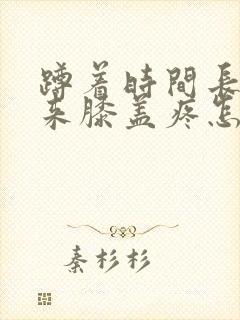 蹲着时間長
来膝盖疼怎
秦杉杉